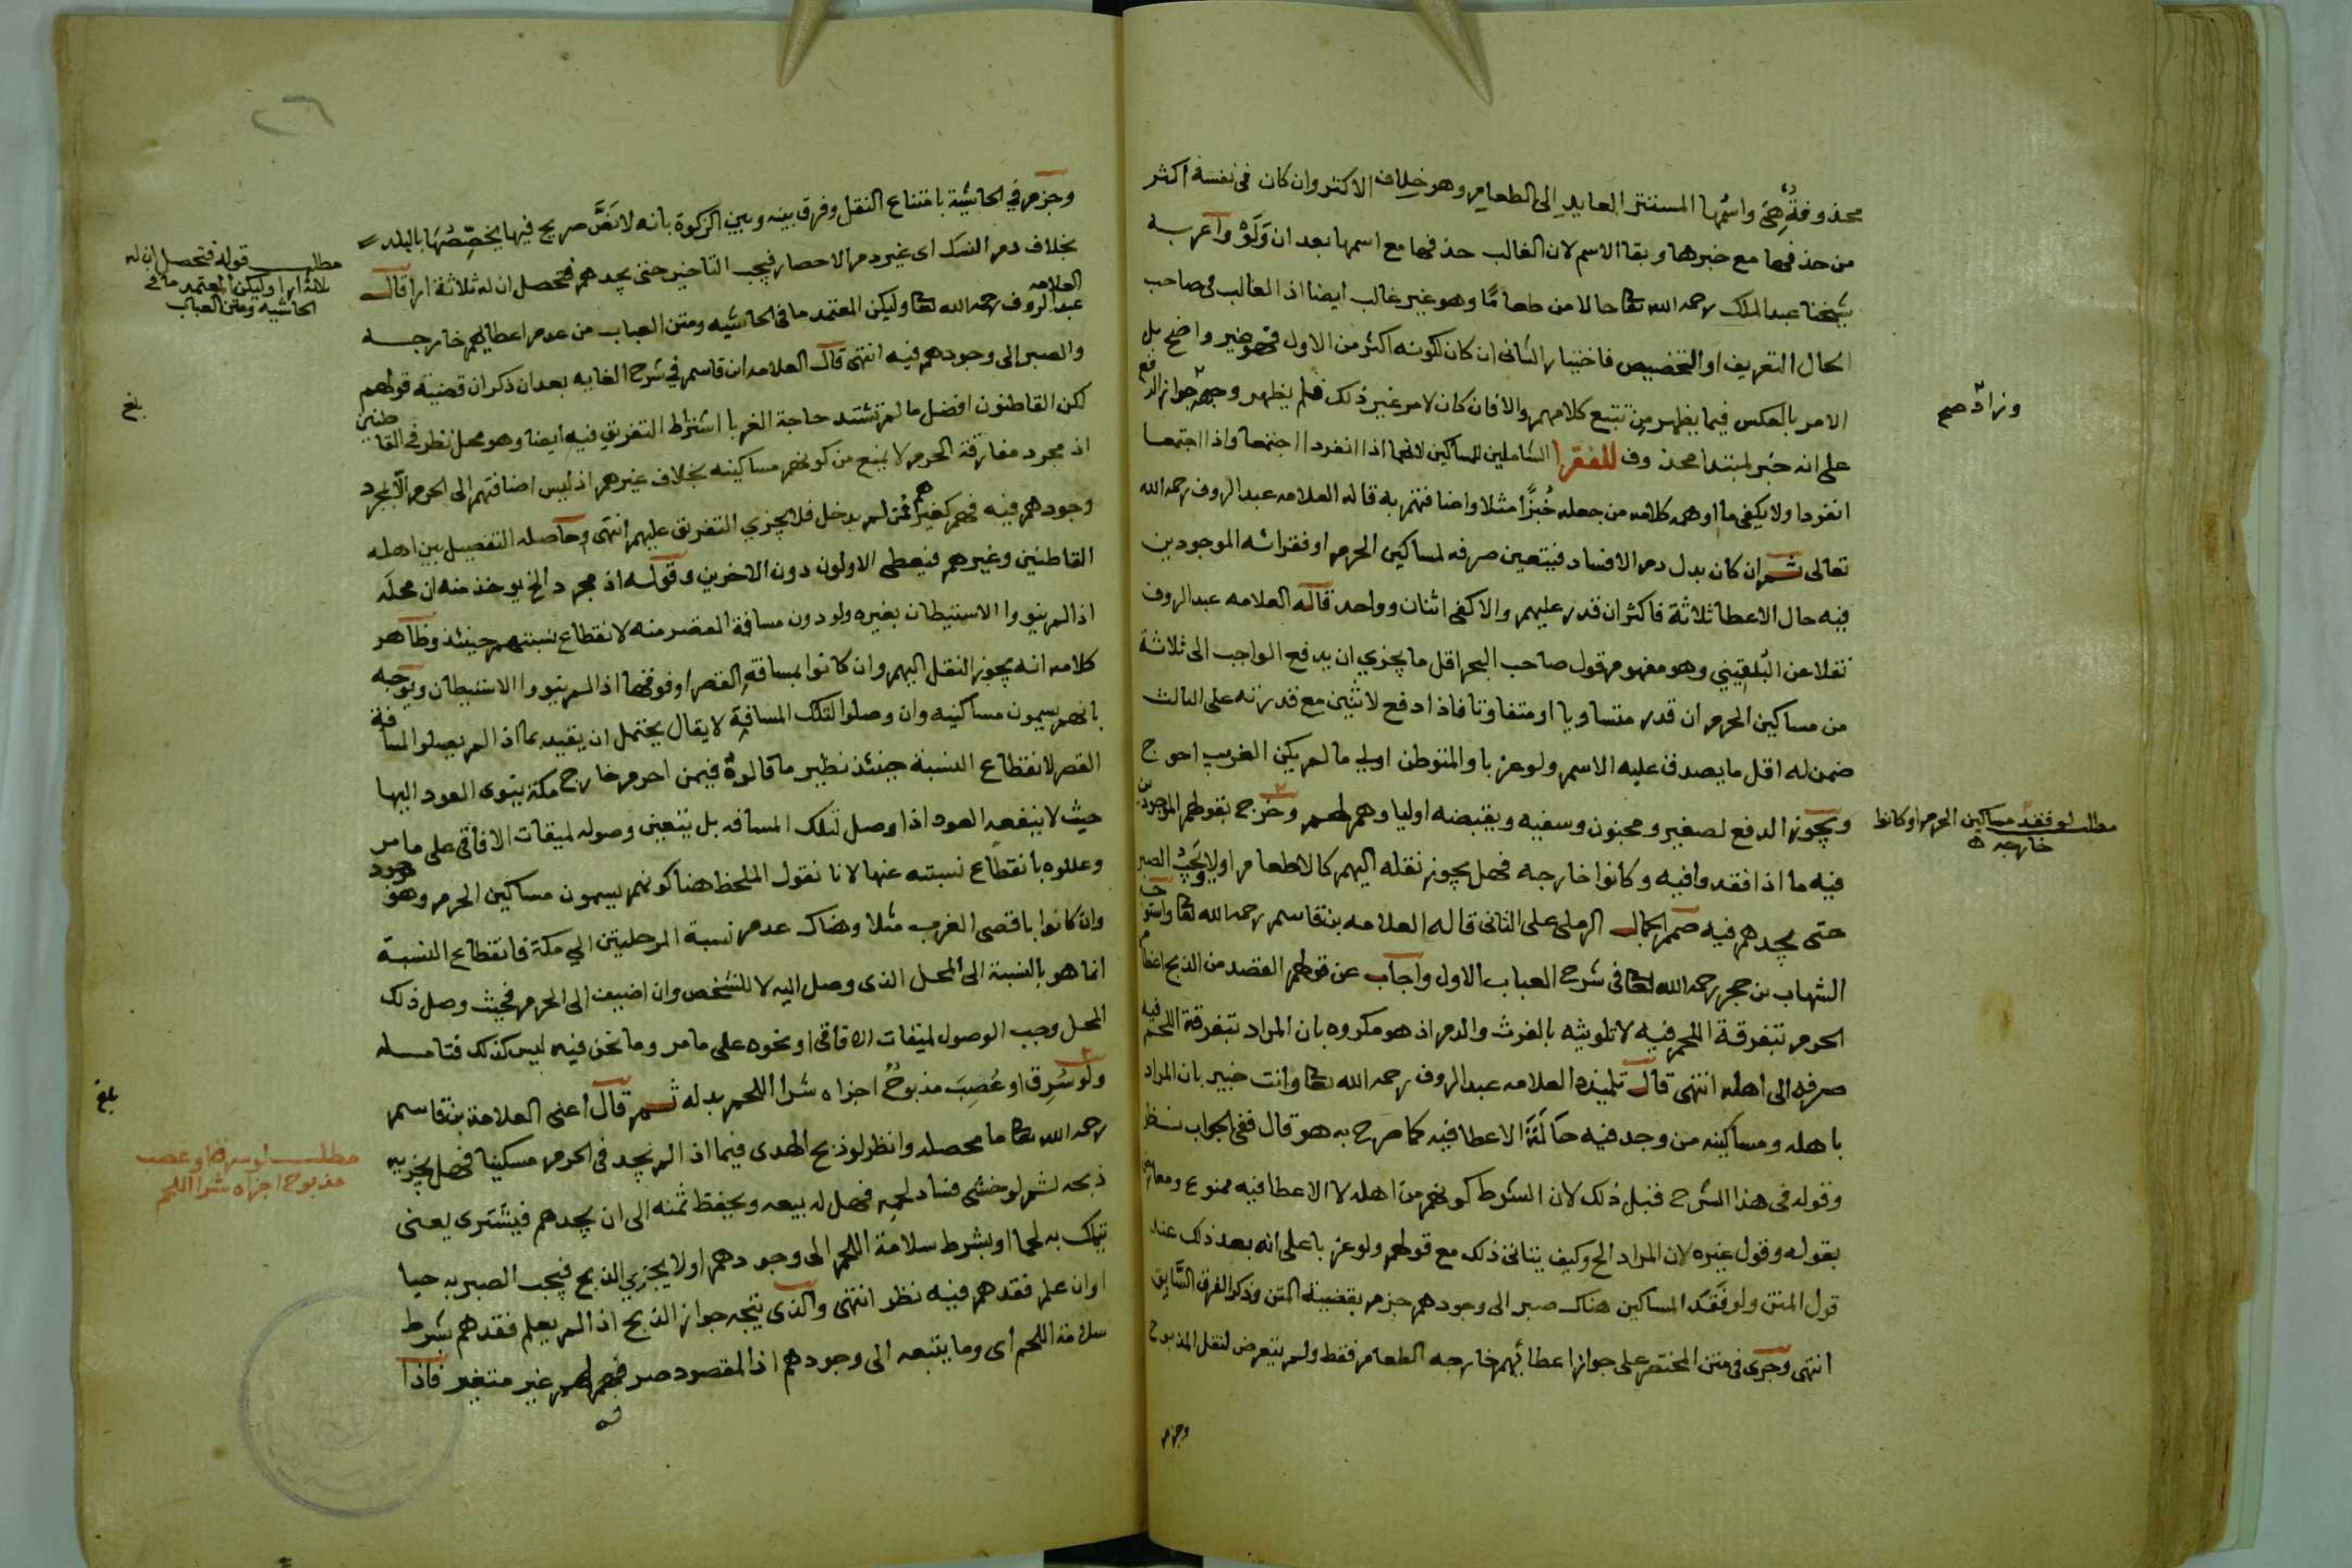 محذوفةٌ هِيَ واسمُها المستتر العايدِ الى الطعام وهو خلاف الاكثر وان كان فى نفسه اكثر
من حذفها مع خبرها وبقا الاسم لان الغالب حذفها مع اسمها بعد ان وَلَوْ وأعربه
شيخنا عبد الملك رحمه الله تعا حالا من طعامًا وهو غير غالب ايضا اذ الغالب فى صاحب
الحال التعريف او التخصيص فاختيار الثانى ان كان لكونه اكثر من الاول فهو غير واضح بل
الامر بالعكس فيما يظهر من تتبع كلامهم والا فان كان لامر غير ذلك فلم يظهر وجهه جواز الرفع
وزادَ صح
على انه خبر لمبتدا محذوف للفقرا الشاملين للمساكين لانهما اذا انفردا اجتمعا واذا اجتمعا
انفردا ولا يكفى ما اوهمه كلامه من جعله خُبزًا مثلا واضافتهم به قاله العلامه عبد الروف رحمه الله
تعالى ثم ان كان بدل دم الافساد فيتعين صرفه لمساكين الحرم او فقرائه الموجودين
فيه حال الاعطا ثلاثة فاكثر ان قدر عليهم والا كفى اثنان وواحد قاله العلامه عبد الروف
نقلا عن البُلقيني وهو مفهوم قول صاحب البحر اقل ما يجزي ان يدفع الواجب الى ثلاثة
من مساكين الحرم ان قدر متساويا او متفاوتا فاذا دفع لاثنين مع قدرته على الثالث
ضمن له اقل ما يصدق عليه الاسم ولو عزبا والمتوطن اولى ما لم يكن الغريب احوج
ويجوز الدفع لصغير ومجنون وسفيه ويقبضه اولياوهم لهم وخرج بقولهم الموجودين
مطلب لو فقد مساكين الحرم او كانوا
خارجه
فيه ما اذا فقدوا فيه وكانوا خارجه فهل يجوز نقله اليهم كالاطعام او لا ويجب الصبر
حتى يجدهم فيه صمم الجمال الرملى على الثانى قاله العلامه بن قاسم رحمه الله تعا واستوجب
الشهاب بن حجر رحمه الله تعا فى شرح العباب الاول واجاب عن قولهم القصد من الذبح اعظام
الحرم بتفرقة اللحم فيه لا تلويثه بالفرث والدم اذ هو مكروه بان المراد بتفرقة اللحم فيه
صرفه الى اهله انتهى قال تلميذه العلامه عبد الروف رحمه الله تعا وانت خبير بان المراد
باهله ومساكينه من وجد فيه حَالَةَ الاعطا فيه كما صرح به هو قال ففى الجواب نظر
وقوله فى هذا الشرح قبل ذلك لان الشرط كونهم من اهله لا الاعطا فيه ممنوع ومعارض
بقوله وقول غيره لان المراد الح وكيف ينافى ذلك مع قولهم ولو عزبا على انه بعد ذلك عند
قول المتن ولو فَقَدَ المساكين هناك صبر الى وجودهم جزم بقضية المتن وذكر الفرق السَّابق
انتهى وجرى فى متن المختصر على جواز اعطائهم خارجه الطعام فقط ولم يتعرض لنقل المذبوح
وجزم
٢٦
وجزم في الحاشية بامتناع النقل وفرق بينه وبين الزكوة بانه لا نَصَّ صريح فيها يخصّصُهَا بالبلد
بخلاف دم النسك اى غير دم الاحصار فيجب التاخير حتى يجدهم فتحصل ان له ثلاثة ارا قال العلامه
مطلب قوله فتحصل ان له
ثلاثة ارا وليكن المعتمد ما فى
الحاشيه ومتن العباب
عبد الروف رحمه الله تعا وليكن المعتمد ما فى الحاشيه ومتن العباب من عدم اعطايهم خارجه
والصبر الى وجودهم فيه انتهى قال العلامه ابن قاسم في شرح الغايه بعد ان ذكر ان قضية قولهم
لكن القاطنون افضل ما لم تشتد حاجة الغربا اشتراط التفريق فيه ايضا وهو محل نظر فى القاطنين
بلغ
اذ مجرد مفارقة الحرم لا يمنع من كونهم مساكينه بخلاف غيرهم اذ ليس اضافتهم الى الحرم الّا لمجرد
وجودهم فيه فهم كغيرهم ممن لم يدخل فلا يجزي التفريق عليهم انتهى وحاصله التفصيل بين اهله
القاطنين وغيرهم فيعطى الاولون دون الاخرين وقوله اذ مجرد الخ يوخذ منه ان محله
اذا لم ينووا الاستيطان بغيره ولو دون مسافة القصر منه لانقطاع نسبتهم حينئذ وظاهر
كلامه انه يجوز النقل اليهم وان كانوا بمسافة القصر او فوقها اذا لم ينووا الاستيطان ويوجه
بانهم يسمون مساكينه وان وصلوا لتلك المسافة لا يقال يحتمل ان يقيد بما اذا لم يصلوا لمسافة
القصر لانقطاع النسبة حينئذ نظير ما قالوهُ فيمن احرم خارج مكة بنوى العود اليها
حيث لا ينفعه العود اذا وصل لتلك المسافه بل يتعين وصوله لميقات الافاقى على ما مر
وعللوه بانقطاع نسبته عنها لانا نقول الملحظ هنا كونهم يسمون مساكين الحرم وهو موجود
وان كانوا باقصى الغرب مثلا وهناك عدم نسبة المرحلتين الي مكة فانقطاع النسبة
انما هو بالنسبة الى المحل الذى وصل اليه لا للشخص وان اضيف الى الحرم فحيث وصل ذلك
المحل وجب الوصول لميقات الافاقى او نحوه على ما مر وما نحن فيه ليس كذلك فتامله
ولو سُرِق او غُصِبَ مذبوحٌ اجزاه شرا اللحم بدله ثم قال اعنى العلامة بن قاسم
بلغ
رحمه الله تعا ما محصله وانظر لو ذبح الهدى فيما اذا لم يجد فى الحرم مسكينا فهل يجزيه
مطلب لو سرق او غصب
مذبوح اجزاه شرا اللحم
ذبحه ثم لو خشى فساد لحمِه فهل له بيعه ويحفظ ثمنه الى ان يجدهم فيشترى يعنى
بتلك به لحما او بشرط سلامة اللحم الى وجودهم او لا يجزي الذبح فيجب الصبر به حيا
اوان علم فقدهم فيه نظر انتهى والذى يتجه جواز الذبح اذا لم يعلم فقدهم بشرط
سلامة اللحم اى وما يتبعه الى وجودهم اذ المقصود صرفهم لهم غير متغير فاذا